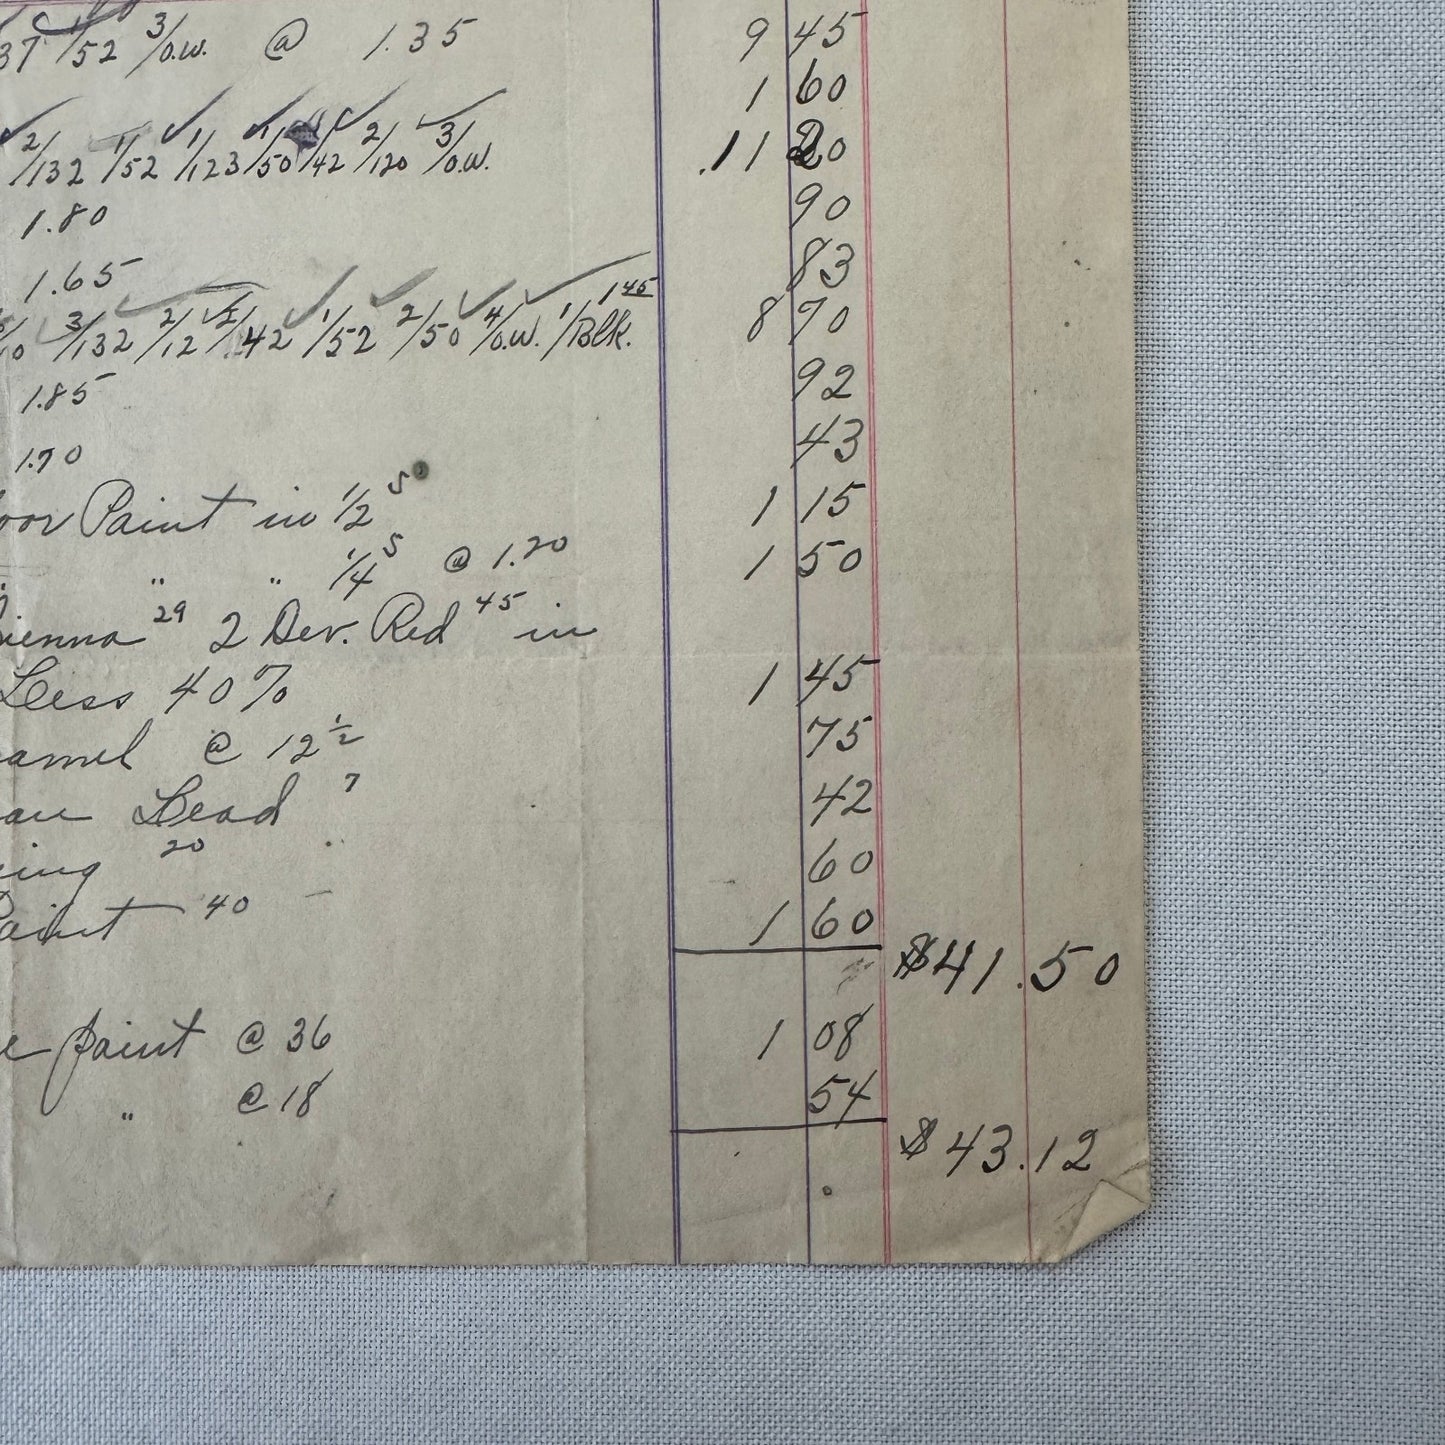 37 1/52 3/O.W. @ 1.35 9 45
1 60
2/132 1/52 1/123 1/50 1/42 2/120 3/O.W. 11 20
1.80 90
1.65 83
3/132 2/12 2/42 1/52 2/50 4/O.W. 1/Blk. 1 45 8 70
1.85 92
1.70 43
oor Paint in 1/2 s 1 15
" " 1/4 s @ 1.20 1 50
ienna 29 2 Dev. Red 45 in
Less 40% 1 45
amel @ 12 1/2 75
Lead 7 42
ing 20 60
Paint 40 1 60
$41.50
e paint @ 36 1 08
" @ 18 54
$43.12